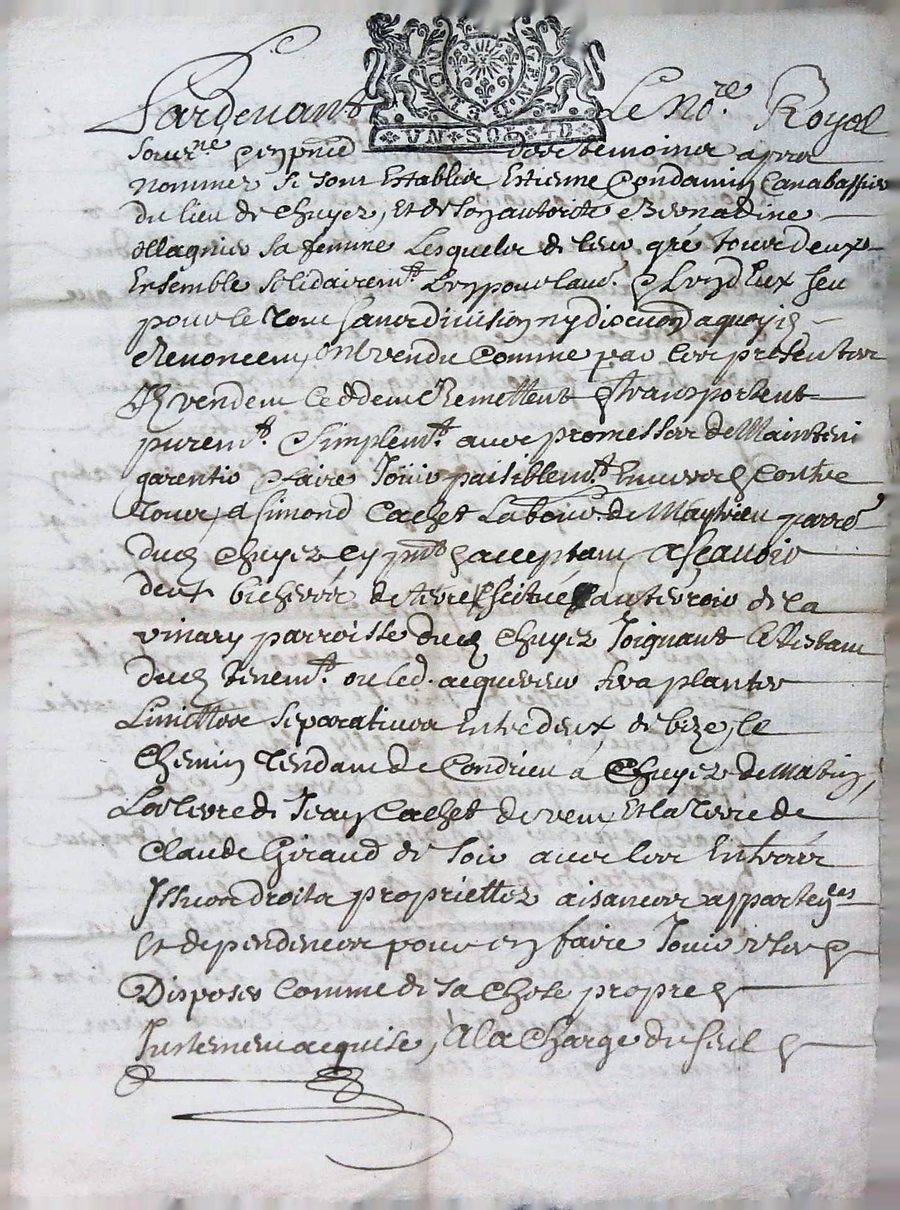 GEN. DE LION
VN SOL 4D
Pardevant Le No.re Royal
sous.ne Et pn̄ce des temoins apres
nommez se sont Establis Estienne Condamin Canabassier
du lieu de Chuyez, Et de son autorité Bernadine
Ollagnier sa femme Lesquelz de leur gré tous deux
Ensemble solidairem.t L'un pour l'autre & L'un d'Eux seu
pour le tout sans division ny discution a quoy ils
Renoncent, ont vendu comme par les presentes
Ilz vendent ceddent Remettent & transportent
purem.t & simplem.t avec promesses de Mainteni
garentir & faire Jouir paisiblem.t Envers & Contre
Tous, a Simond Cachet Labour. de Maytrieu parre
dud Chuyez cy pnt & acceptant, a scavoir
deux bicherées de terre scitué au terroir de la
vinary parroisse dud Chuyez Joignant le Restant
dud tenem.t ou led. acquereur fera planter
Limittes separatives Entre deux de bize, le
Chemin Tendant de Condrieu a Chuyez de Matin,
La terre de Jean Cachet de vent Et la Terre de
Claude Giraud de soir avec ses Entrées
Issues droits proprietez aisances apparten.ces
Et dependences pour en faire Jouir User &
Disposer comme de sa chose propre &
Justement acquise, A la Charge du seul &